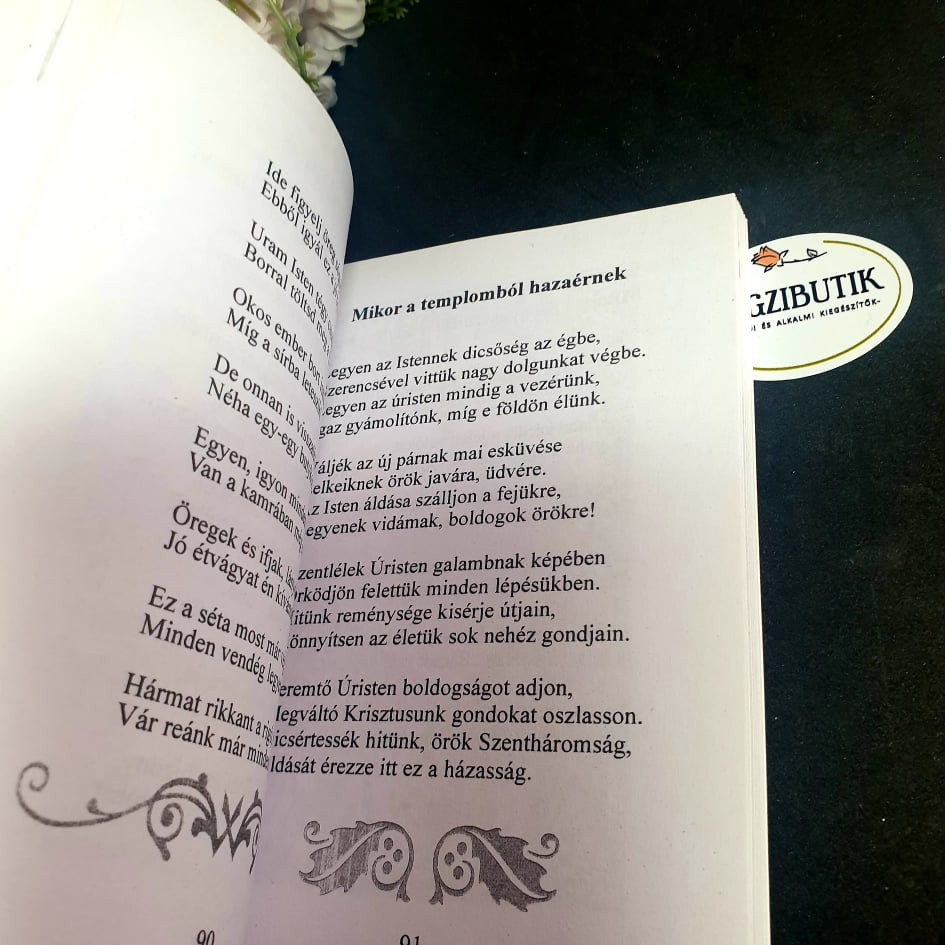 Ide figyelj
Ebből igyál ez a
Uram Isten
Borral töltsd
Okos ember bort
Míg a sírba
De onnan is
Néha egy-egy
Egyen, igyon
Van a kamrában
Öregek és ifjak,
Jó étvágyat én
Ez a séta most már
Minden vendég
Hármat rikkant a
Vár reánk már
90
Mikor a templomból hazaérnek
egyen az Istennek dicsőség az égbe,
zerencsével vittük nagy dolgunkat végbe.
egyen az úristen mindig a vezérünk,
gaz gyámolítónk, míg e földön élünk.
áljék az új párnak mai esküvése
elkeiknek örök javára, üdvére.
z Isten áldása szálljon a fejükre,
egyenek vidámak, boldogok örökre!
zentlélek Úristen galambnak képében
rködjön felettük minden lépésükben.
itünk reménysége kisérje útjain,
önnyítsen az életük sok nehéz gondjain.
eremtő Úristen boldogságot adjon,
egváltó Krisztusunk gondokat oszlasson.
icsértessék hitünk, örök Szentháromság,
ldását érezze itt ez a házasság.
91
GZIBUTIK
I ÉS ALKALMI KIEGÉSZÍTŐK-